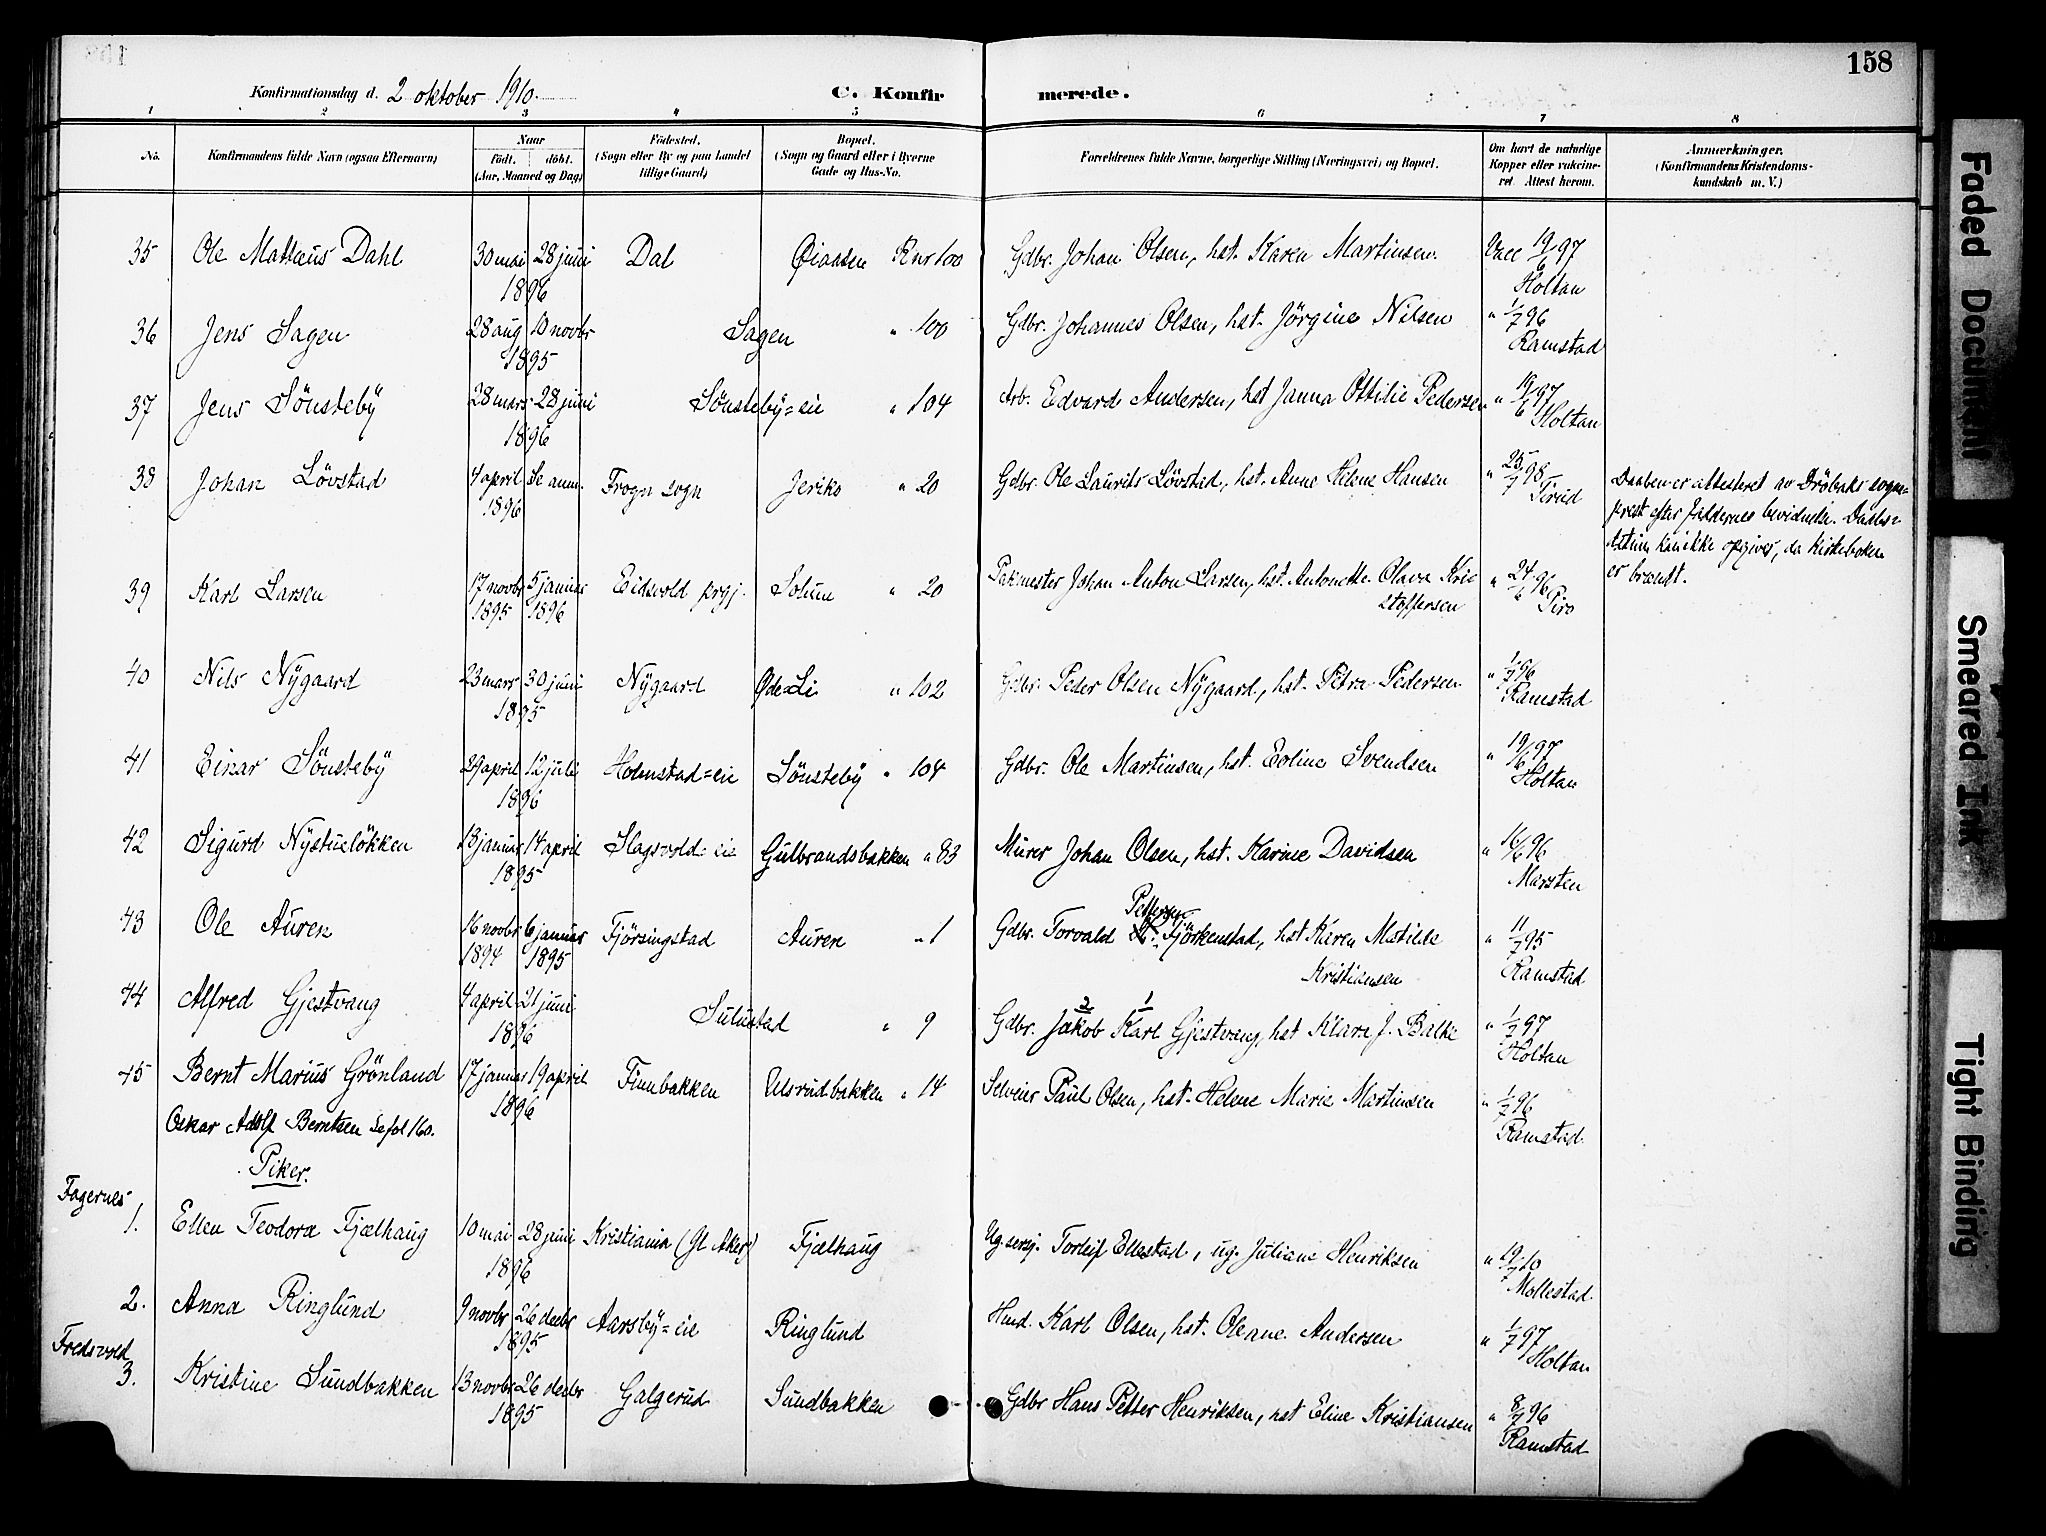 158
Konfirmationsdag d. 2 oktober 1910.
C. Konfirmerede.
1 2 3 4 5 6 7 8
No. Konfirmandens fulde Navn (ogsaa Efternavn) Naar født. døbt. (Aar, Maaned og Dag) Fødested. (Sogn eller By og paa Landet tillige Gaard) Bopæl. (Sogn og Gaard eller i Byerne Gade og Hus-No. Forældrenes fulde Navne, borgerlige Stilling (Næringsvei) og Bopæl. Om havt de naturlige Kopper eller vakcineret. Attest herom. Anmærkninger. (Konfirmandens Kristendomskundskab m. V.)
35 Ole Matæus Dahl 30 mai 28 juni 1896 Dal Øiaasen Rnr 100 Gdbr. Johan Olsen, hst. Karen Martinsen. Vacc 19/6 97 Holtan
36 Jens Sagen 28 aug 10 novbr 1895 Sagen " 100 Gdbr. Johannes Olsen, hst. Jörgine Nilsen " 1/7 96 Ramstad
37 Jens Sönsteby 28 mars 28 juni 1896 Sönsteby=eie " 104 Arb. Edvard Andersen, hst Janna Ottilie Pedersen " 19/6 97 Holtan
38 Johan Lövstad 4 april Se anm. 1896 Frogn sogn Jeriko " 20 Gdbr. Ole Laurits Lövstad, hst. Anne Helene Hansen " 25/7 98
Daaben er attesteret av Dröbaks sogne=
prest efter faddernes bevidnelse. Daabs=
datum kan ikke opgives, da kirkeboken
er brændt.
39 Karl Larsen 17 novbr 1895 5 januar 1896 Eidsvold prgj. Solum " 20 Pakmester Johan Anton Larsen, hst. Antonette Olava Kristoffersen " 24/6 96
40 Nils Nygaard 23 mars 30 juni 1895 Nygaard Øde=Li " 102 Gdbr. Peder Olsen Nygaard, hst. Petra Pedersen " 1/7 96 Ramstad
41 Einar Sönsteby 29 april 12 juli 1896 Holmstad=eie Sönsteby " 104 Gdbr. Ole Martinsen, hst. Eoline Svendsen " 19/6 97 Holtan
42 Sigurd Nystuelökken 13 januar 14 april 1895 Slagsvold=eie Gulbrandsbakken " 83 Murer Johan Olsen, hst. Karine Davidsen " 16/6 96 Marsten
43 Ole Auren 16 novbr 1894 6 januar 1895 Fjörsingstad Auren " 1 Gdbr. Torvald Pettersen Fjörkenstad, hst Karen Matilde Kristiansen " 11/7 95 Ramstad
44 Alfred Gjestvang 4 april 21 juni 1896 Sulustad " 9 Gdbr. 2 Jakob 1 Karl Gjestvang, hst Klara J. Balke " 1/7 97 Holtan
45 Bernt Marius Grönland 17 januar 19 april 1896 Finnbakken Ulsrudbakken " 14 Selveier Paul Olsen, hst. Helene Marie Martinsen " 1/7 96 Ramstad
Oskar Adolf Berntsen se fol 160.
Piker.
Fagernes
1. Ellen Teodora Fjælhaug 10 mai 28 juni 1896 Kristiania (Gl Aker) Fjælhaug Torleif Ellestad, ug. Juliane Henriksen " 19/7 10 Mollestad.
2. Anna Ringlund 9 novbr 26 decbr 1895 Aarsby=eie Ringlund Hmd. Karl Olsen, hst. Oleane Andersen " 1/7 97 Holtan
Fredsvold
3. Kristine Sundbakken 13 novbr 26 decbr 1895 Galgerud Sundbakken Gdbr Hans Petter Henriksen, hst Eline Kristiansen " 8/7 96 Ramstad
Faded Document
Smeared Ink
Tight Binding